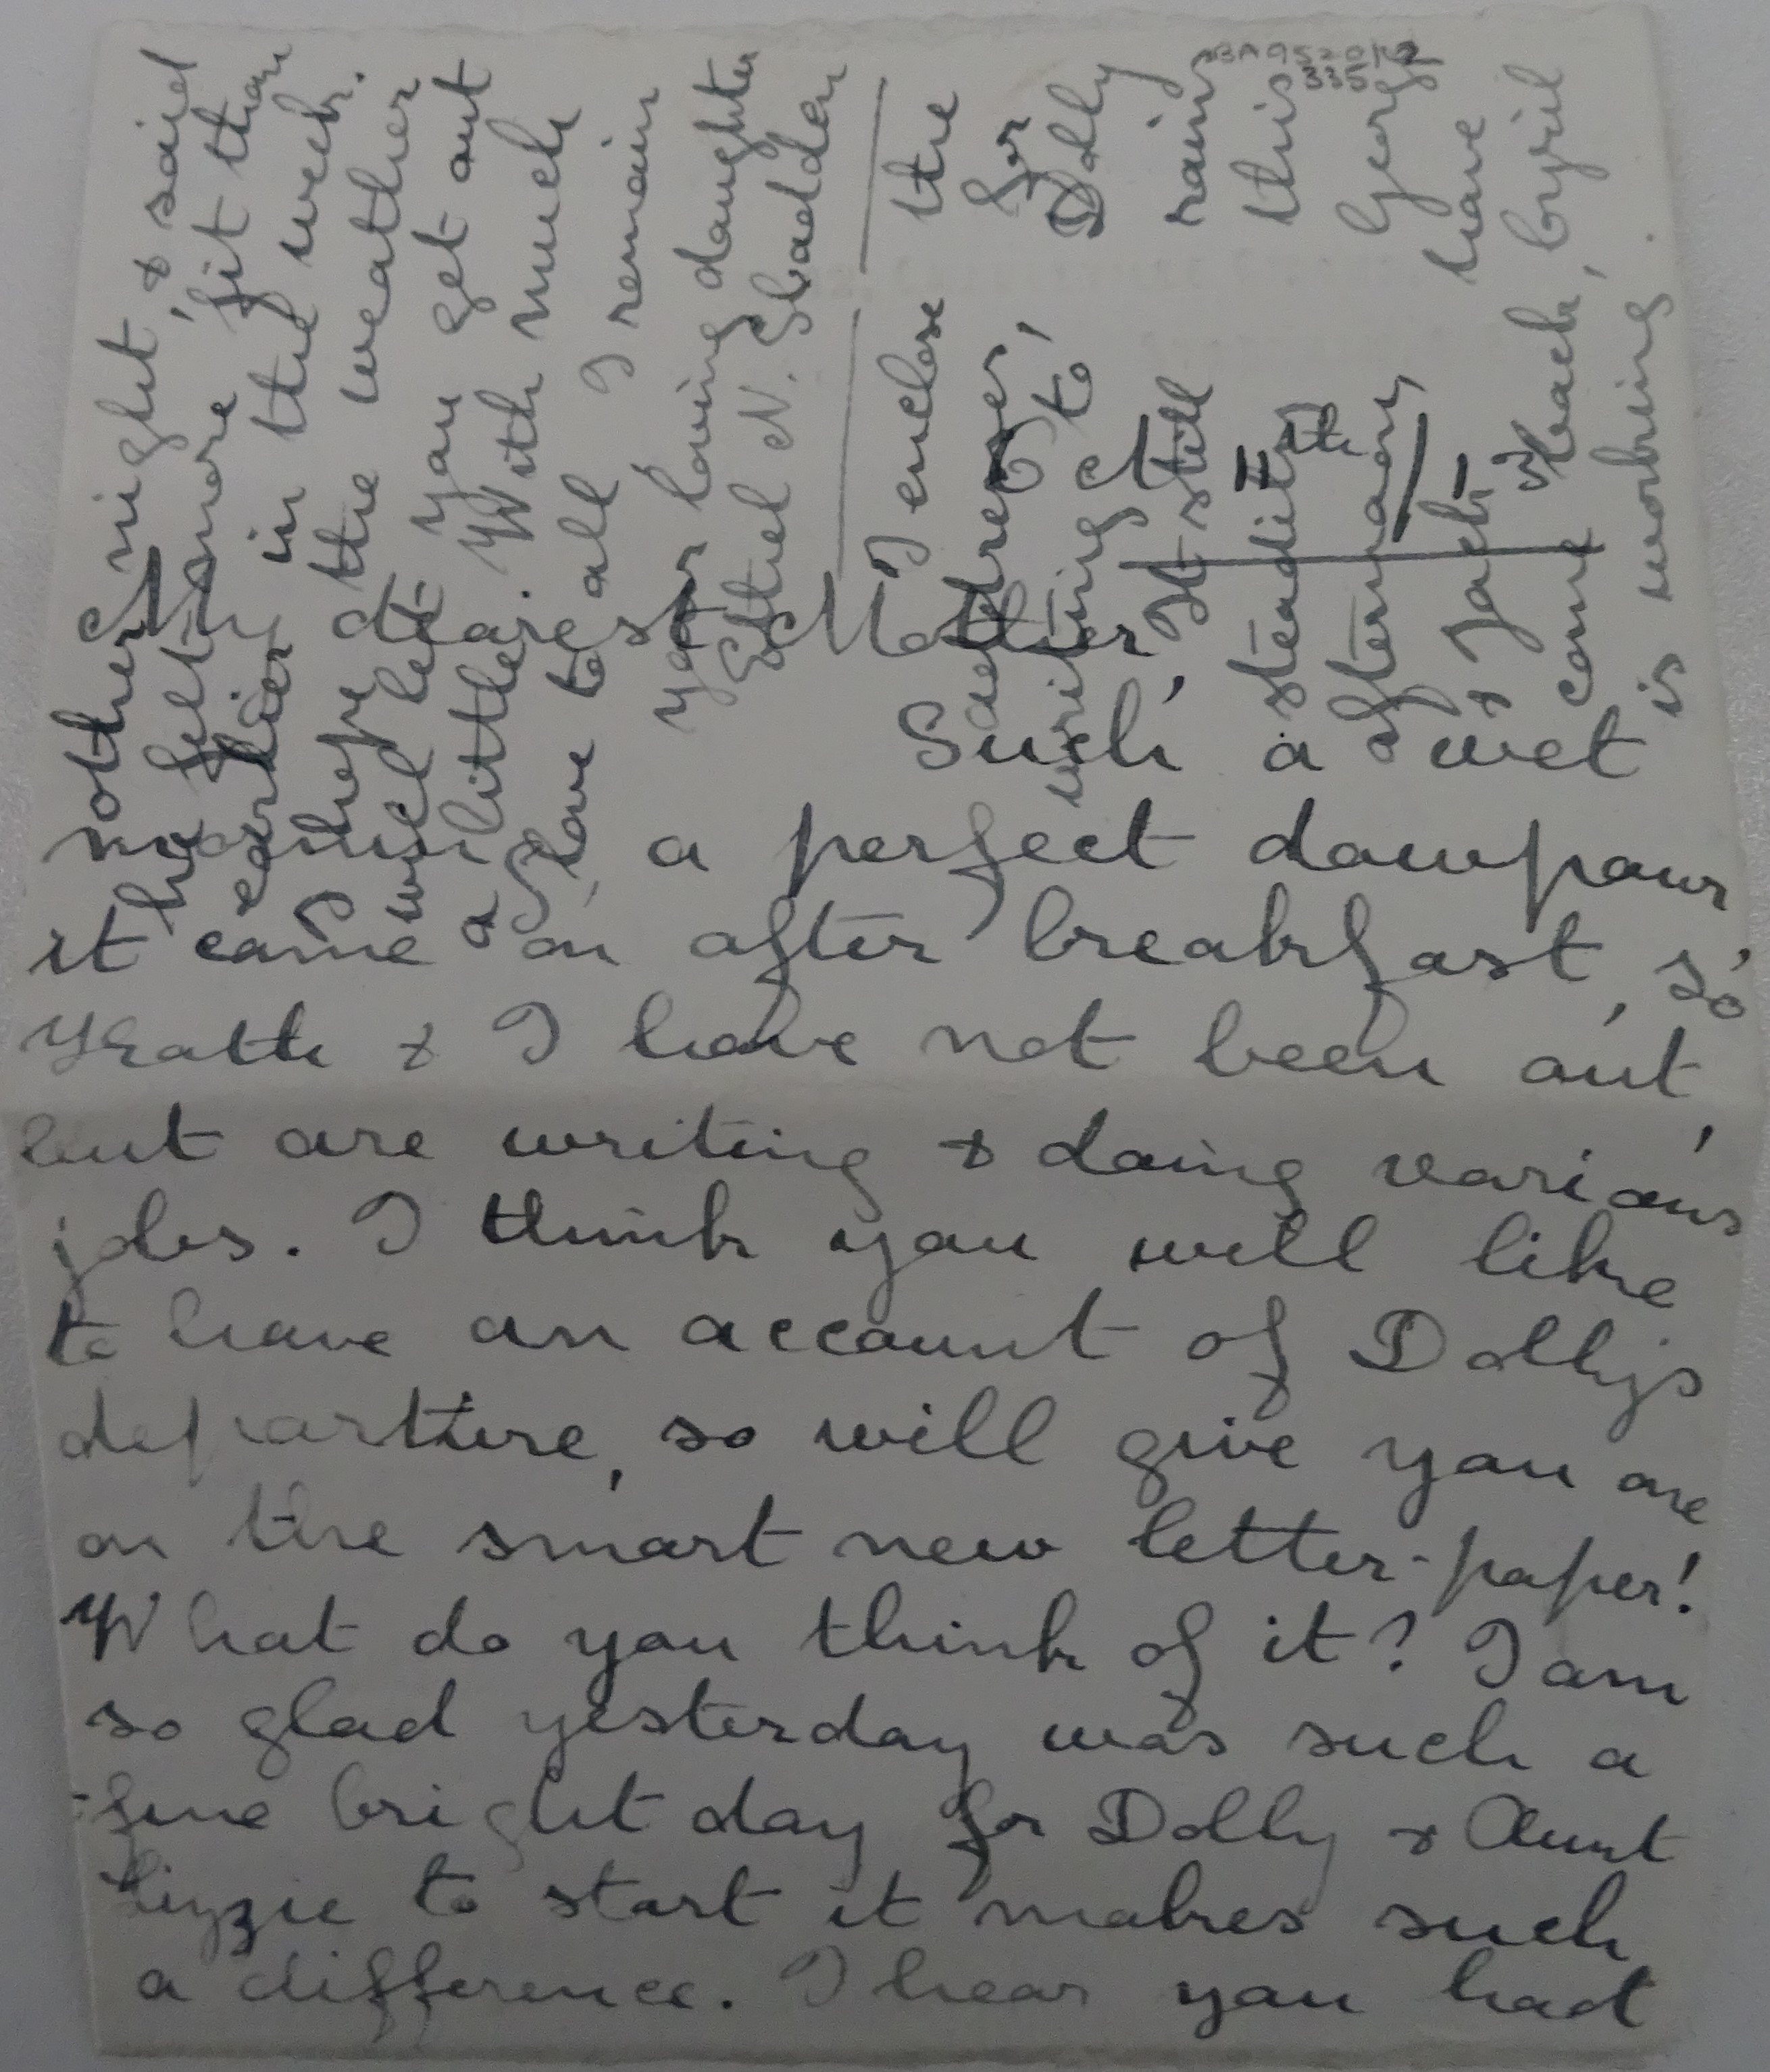 My dearest Mother,
Such a wet
morning a perfect dowpour
it came on after breakfast, so
Kath & I have not been out,
but are writing & doing various
jobs. I think you will like
to have an account of Dolly's
departure, so will give you one
on the smart new letter-paper!
What do you think of it? I am
so glad yesterday was such a
fine bright day for Dolly & Aunt
Lizzie to start it makes such
a difference. I hear you had
other night, & said
he felt more fit than
earlier in the week.
I hope the weather
will let you get out
a little. With much
love to all I remain
Your loving daughter
Ethel N. Sladden
I enclose the
address, for
writing to Dolly
It still rains
steadily this
afternoon, George
& Jack have
come back, Cyril
is working.